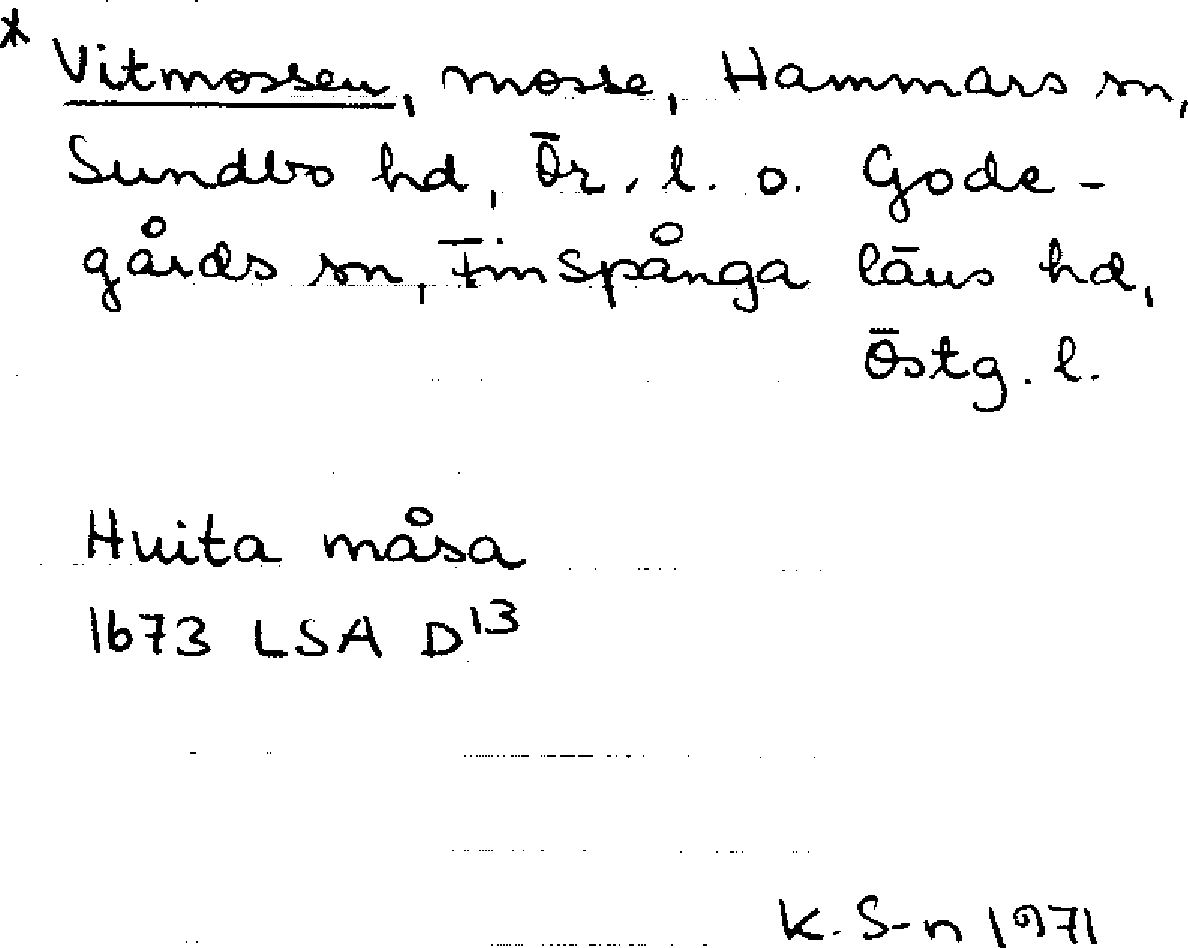 * Vitmossen, mosse, Hammars sn,
Sundbo hd, Ör. l. o. Gode-
gårds sn, Finspånga läns hd,
Östg. l.
Huita måsa
1673 LSA D13
K. S-n 1971